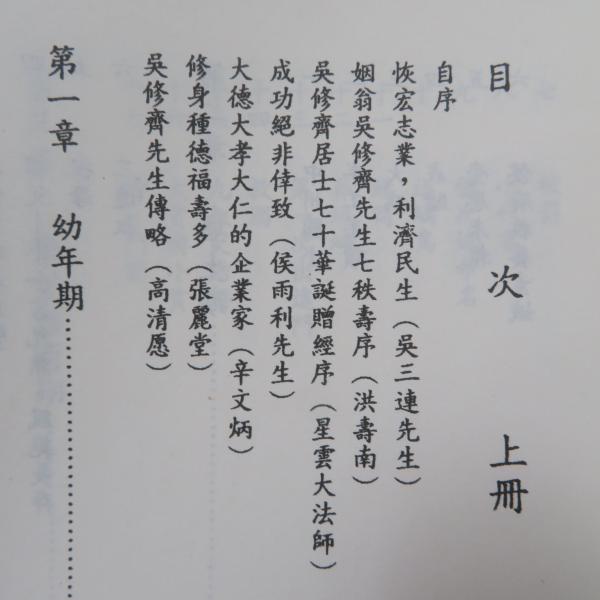 目次　上冊
自序
恢宏志業，利濟民生（吳三連先生）
姻翁吳修齊先生七秩壽序（洪壽南）
吳修齊居士七十華誕贈經序（星雲大法師）
成功絕非倖致（侯雨利先生）
大德大孝大仁的企業家（辛文炳）
修身種德福壽多（張麗堂）
吳修齊先生傳略（高清愿）
第一章　幼年期……………………